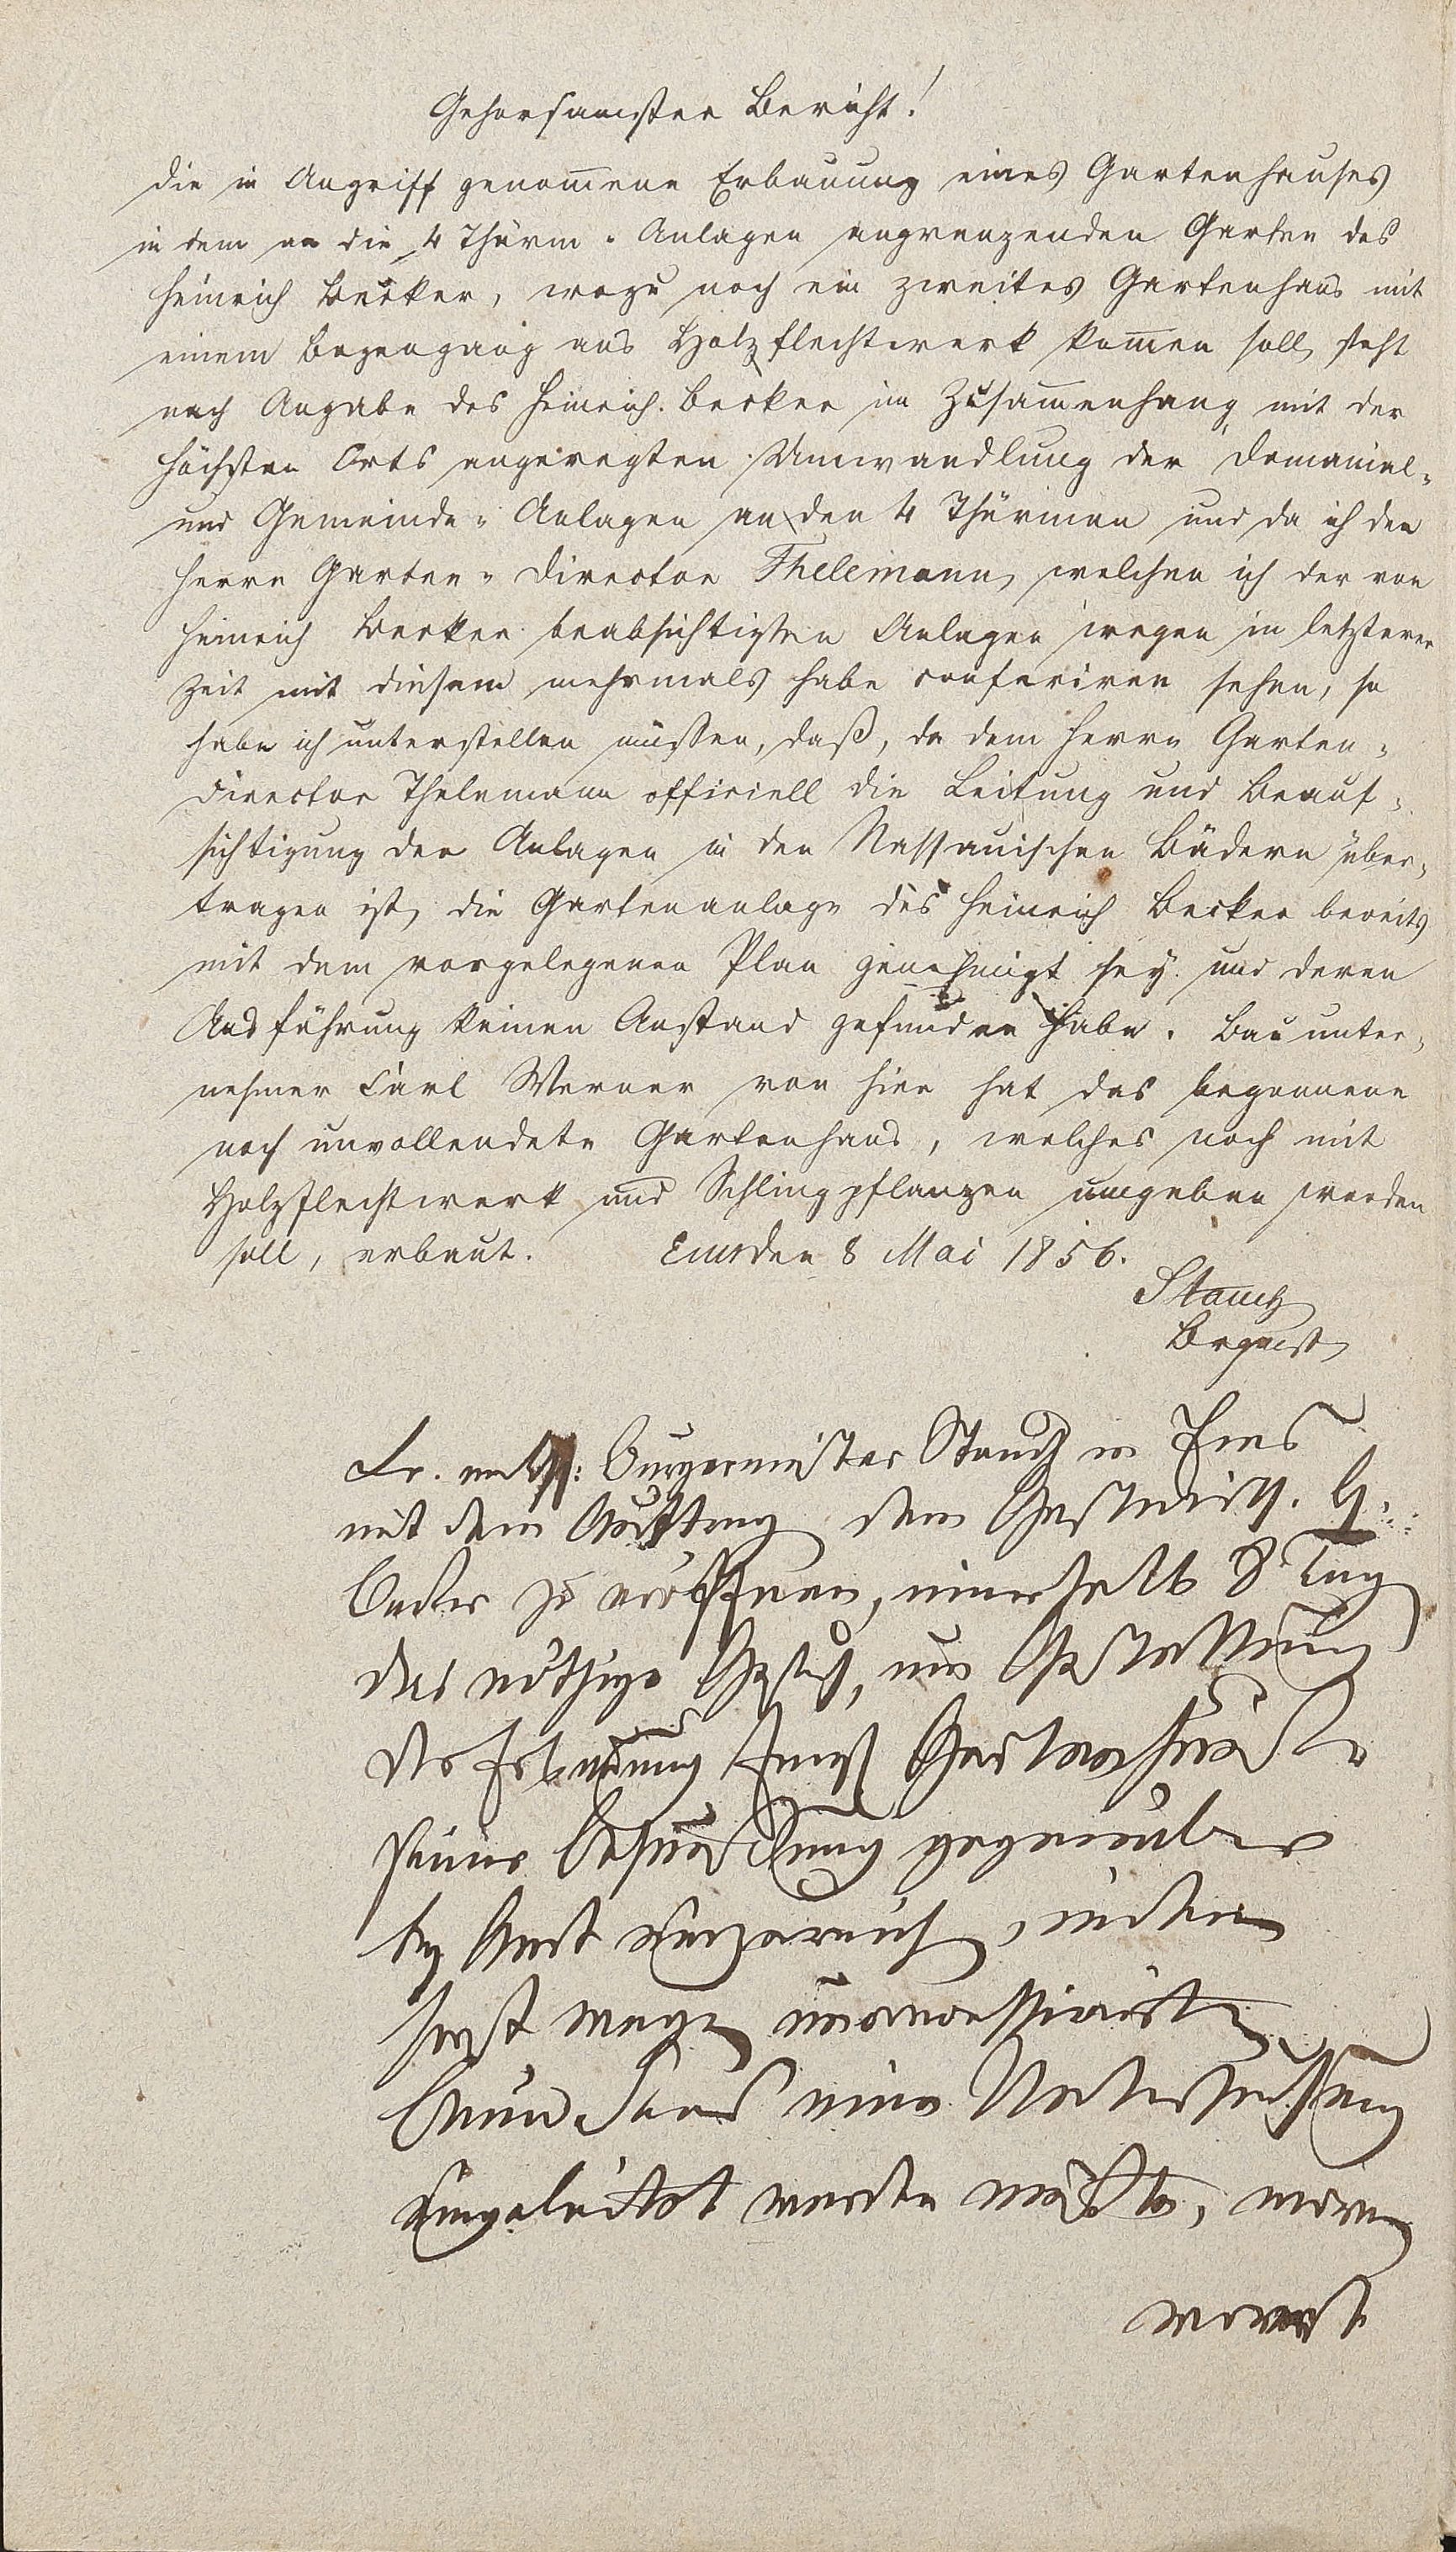 Gehorsamster Bericht!
die in Angriff genom̅ene Erbauung eines Gartenhauses
in dem an die 4 Thürm-Anlagen angrenzenden Garten des
Heinrich Becker, wozu noch ein zweites Gartenhaus mit
einem Bogengang aus Holzflechtwerk kom̅en soll, steht
nach Angabe des Heinrich Becker im Zusam̅enhang mit der
höchsten Orts angeregten Umwandlung der Domanial-
und Gemeinde-Anlagen an den 4 Thürmen und da ich den
Herrn Garten-Director Thelemann, welchen ich der von
Heinrich Becker beabsichtigten Anlagen wegen in letzterer
Zeit mit diesem mehrmals habe conferiren sehen, so
habe ich unterstellen müssen, daß, da dem Herrn Garten-
Director Thelemann officiell die Leitung und Beauf-
sichtigung der Anlagen in den Nassauischen Bädern über-
tragen ist, die Gartenanlage des Heinrich Becker bereits
mit dem vorgelegenen Plan genehmigt sey und deren
Ausführung keinen Anstand gefunden habe. Bauunter-
nehmer Carl Werner von hier hat das begonnene
noch unvollendete Gartenhaus, welches noch mit
Holzflechtwerk und Schlingpflanzen umgeben werden
soll, erbaut. Ems den 8 Mai 1856.
Stauch
Bürgermeister Stauch in Ems
mit dem Auftrag dem H.
Becker zu eröffnen, innerhalb 8 Tag
das nöthige Gesuch, um Gestattung
der Erbauung Gartenhäuser
seiner Behausung gegenüber
bey Amt einzureichen, indem
sonst wegen unconcessionirten
Bauens eine Untersuchung
eingeleitet werden müßte,